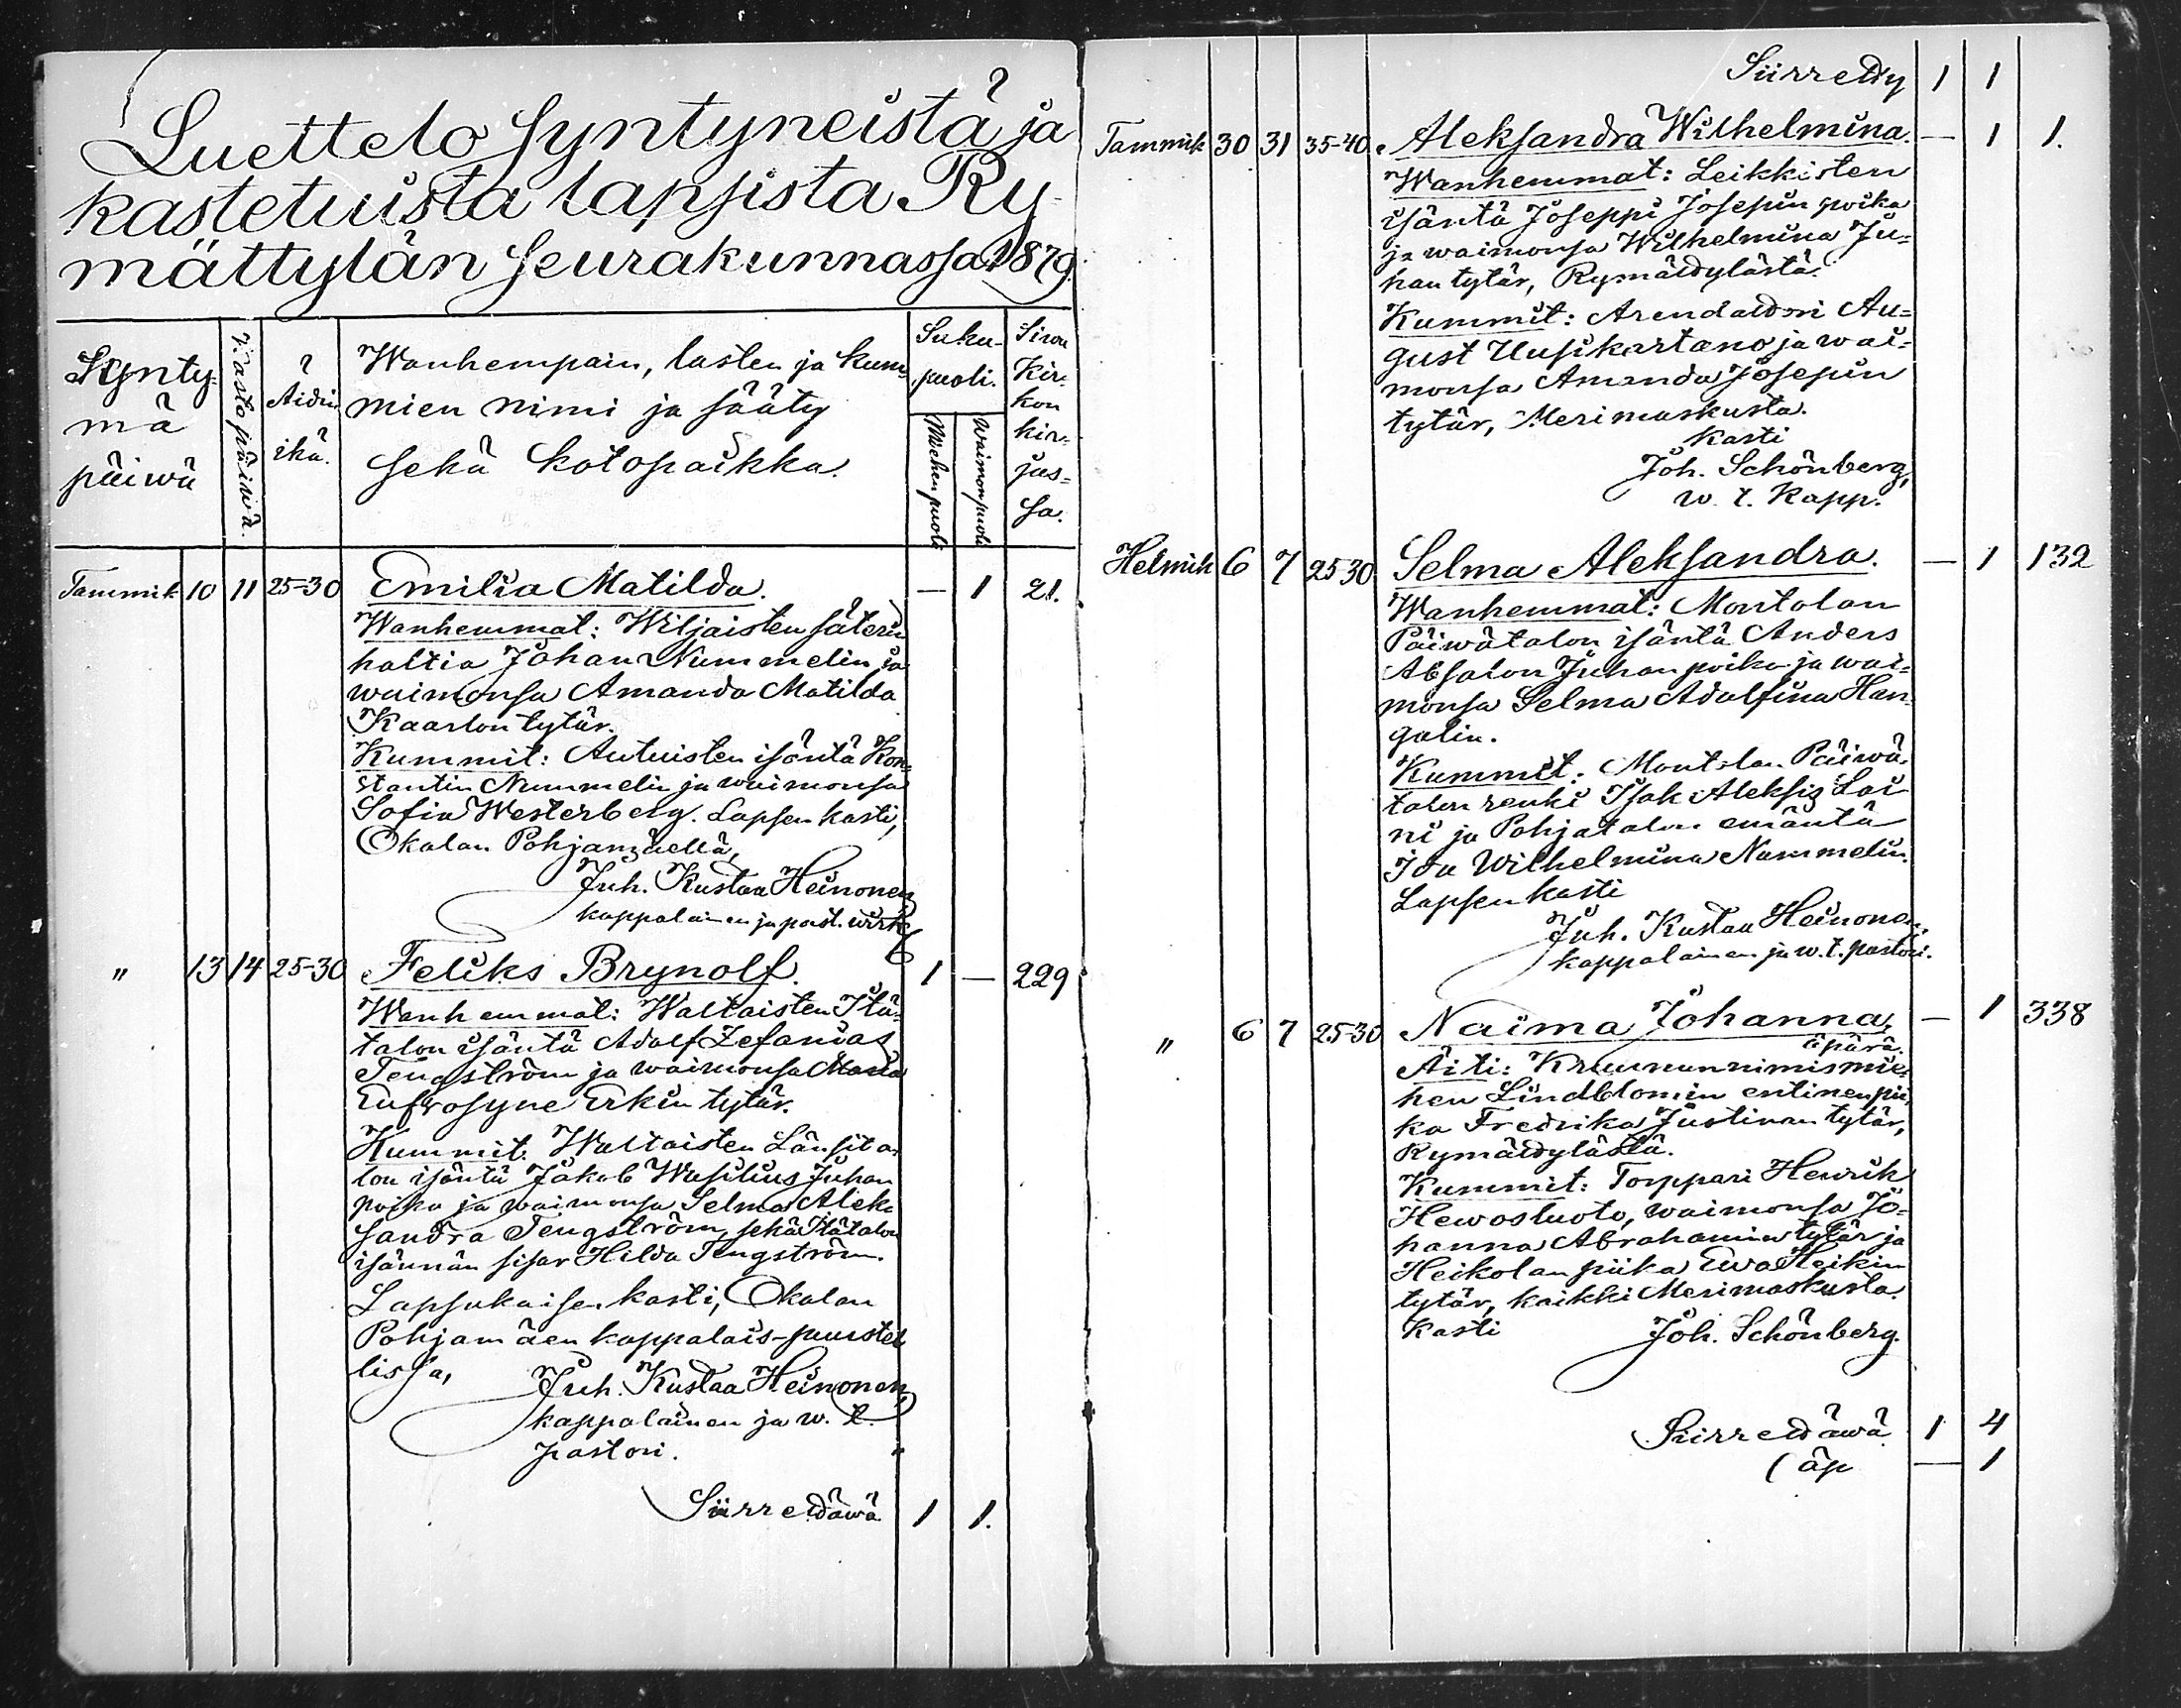 Luettelo syntyneistä ja
kastetuista lapsista Ry-
mättylän seurakunnassa 1879.
Synty-
mä
päiwä
Kastepäiwä.
Äidin
ikä.
Wanhempain, lasten ja kum-
mien nimi ja sääty
sekä kotopaikka.
Suku-
puoli.
Miehenpuoli
Waimonpuoli
Siwu
Kir-
kon
kir-
jas-
sa.
Tammik 10 11 25-30 Emilia Matilda. — 1 21.
Wanhemmat: Wiljaisten säterin
haltia Johan Nummelin ja
waimonsa Amanda Matilda
Kaarlon tytär.
Kummit: Autuisten isäntä Kon-
stantin Nummelin ja waimonsa
Sofia Westerberg. Lapsen kasti,
Okalan Pohjamäellä,
Juh. Kustaa Heinonen
kappalainen ja past. wirk.
" 13 14 25-30 Feliks Brynolf. 1 — 229
Wanhemmat: Waltaisten Itä-
talon isäntä Adolf Zefanias
Tengström ja waimonsa Maria
Eufrosyne Erkin tytär.
Kummit: Waltaisten Länsita-
lon isäntä Jakob Wasilius Juhan
poika ja waimonsa Selma Alek-
sandra Tengström, sekä Itätalon
isännän sisar Hilda Tengström.
Lapsukaisen kasti, Okalan
Pohjamäen kappalais-puustel-
lissa,
Juh. Kustaa Heinonen,
kappalainen ja w. t.
pastori.
Siirrettäwä 1 1.
Siirretty 1 1
Tammik 30 31 35-40. Aleksandra Wilhelmina. — 1 1.
Wanhemmat: Leikkisten
isäntä Joseppi Josepin poika
ja waimonsa Wilhelmina Ju-
han tytär, Rymättylästä.
Kummit: Arendattori Au-
gust Uusikartano ja wai-
monsa Amanda Josepin
tytär, Merimaskusta.
Kasti
Joh. Schönberg,
w. t. Kapp.
Helmik 6 7 25-30 Selma Aleksandra. — 1 132
Wanhemmat: Montolan
Päiwätalon isäntä Anders
Absalon Juhan poika ja wai-
monsa Selma Adolfina Han-
gelin.
Kummit: Montolan Päiwä-
talon renki Isak Aleksis Lai-
ni ja Pohjatalon emäntä
Ida Wilhelmina Nummelin.
Lapsen kasti
Juh. Kustaa Heinonen,
kappalainen ja w. t. pastori.
" 6 7 25-30 Naima Johanna, — 1 338
äpärä.
Äiti: Kruununnimismie-
hen Lindblomin entinen pii-
ka Fredrika Justinan tytär,
Rymättylästä.
Kummit: Torppari Henrik
Hewosluoto, waimonsa Jo-
hanna Abrahamin tytär ja
Heikolan piika Ewa Heikin
tytär, kaikki Merimaskusta.
Kasti Joh. Schönberg.
Siirrettäwä 1 4
(äp — 1